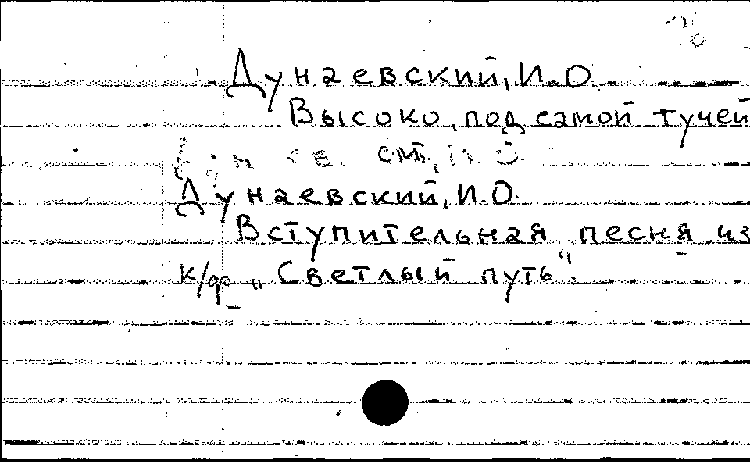 Дунаевский, И. О.
Высоко, под самой тучей
см.
Дунаевский, И. О.
Вступительная песня из
к/ф „Светлый путь“.